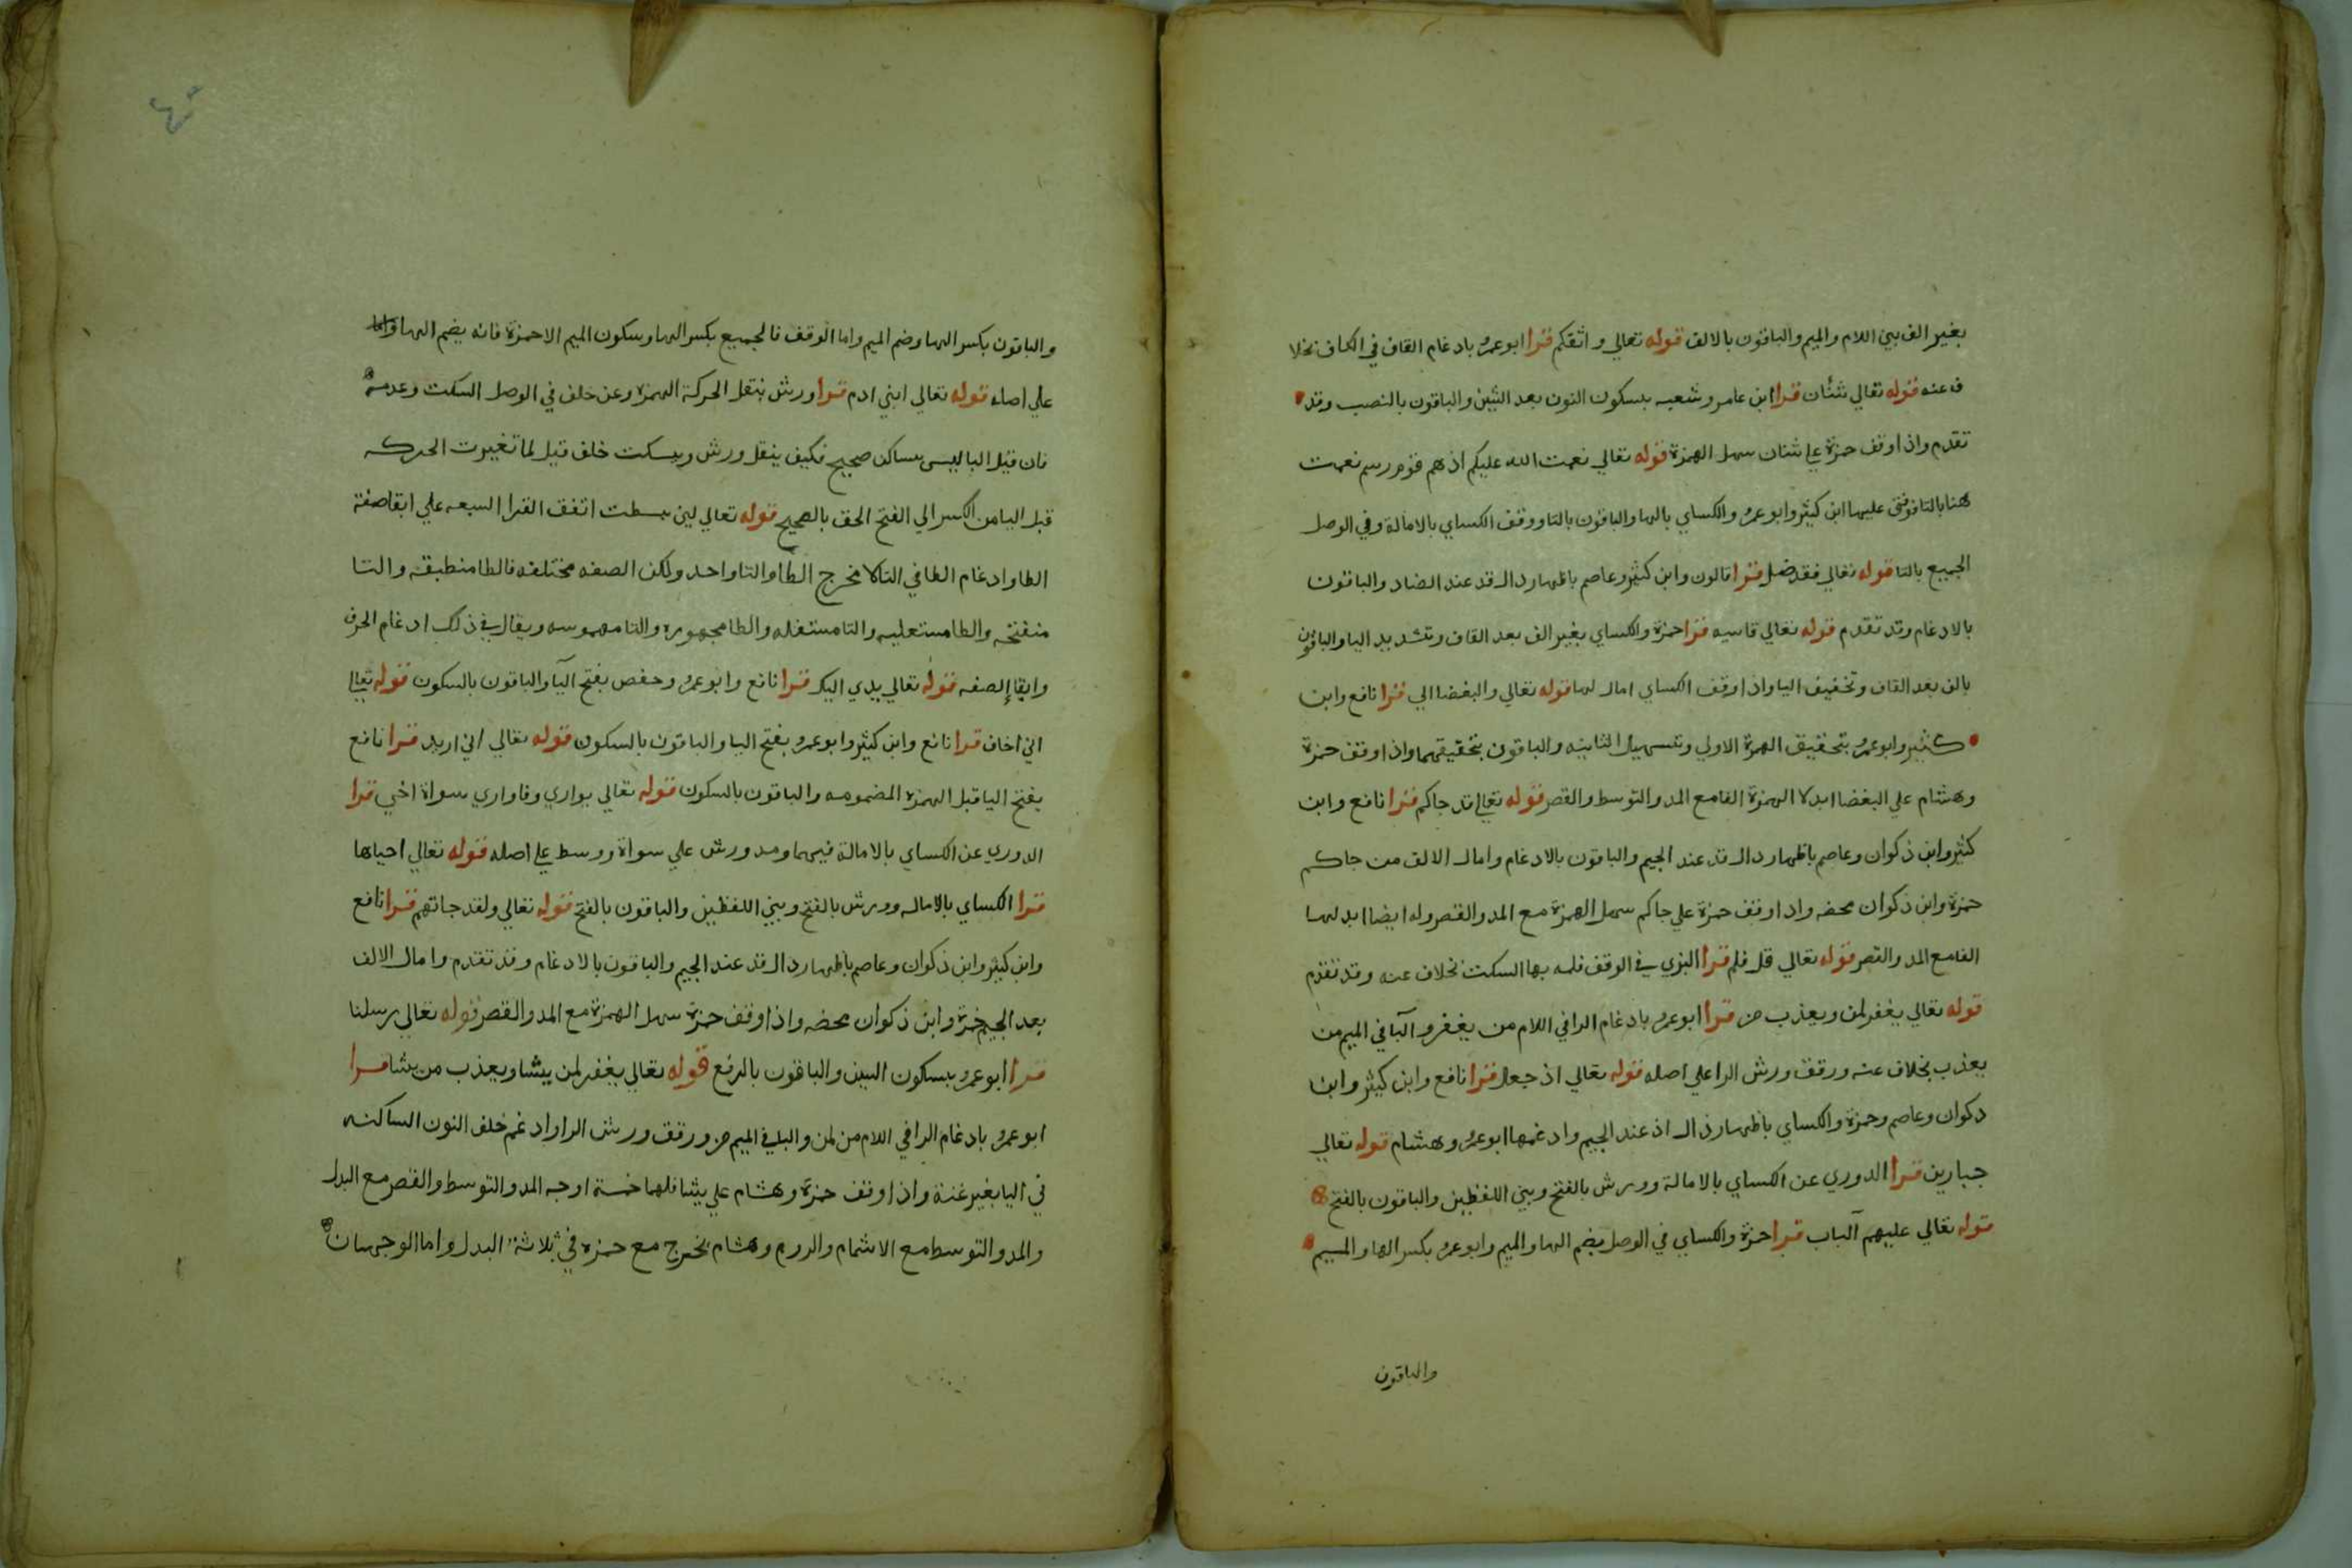 بغير الف بين اللام والميم والباقون بالالف قوله تعالي واثقكم قرا ابوعمرو بادغام القاف في الكاف بخلا
ف عنه قوله تعالي شنئان قرا ابن عامر وشعبه بسكون النون بعد الشين والباقون بالنصب وقد
تقدم واذا وقف حمزة علي شنان سهل الهمزة قوله تعالي نعمت الله عليكم اذ هم قوم رسم نعمت
هنا بالتا فوقف عليها ابن كثير وابو عمرو والكساي بالها والباقون بالتا ووقف الكساي بالامالة وفي الوصل
الجميع بالتا قوله تعالي فقد ضل قرا قالون وابن كثير وعاصم باظهار دال قد عند الضاد والباقون
بالادغام وقد تقدم قوله تعالي قاسيه قرا حمزة والكساي بغير الف بعد القاف وتشديد اليا والباقون
بالف بعد القاف وتخفيف اليا واذا وقف الكساي امال لها قوله تعالي والبغضا الي قرا نافع وابن
كثير وابوعمرو بتحقيق الهمزة الاولي وتسهيل الثانيه والباقون بتحقيقهما واذا وقف حمزة
وهشام علي البغضا ابدلا الهمزة الفا مع المد والتوسط والقصر قوله تعالي قد جاكم قرا نافع وابن
كثير وابن ذكوان وعاصم باظهار دال قد عند الجيم والباقون بالادغام وامال الالف من جاكم
حمزة وابن ذكوان محضه واذا وقف حمزة علي جاكم سهل الهمزة مع المد والقصر وله ايضا ابدلها
الفا مع المد والقصر قوله تعالي قل فلم قرا البزي في الوقف فلمه بها السكت بخلاف عنه وقد تقدم
قوله تعالي يغفر لمن ويعذب من قرا ابوعمرو بادغام الرا في اللام من يغفر والبا في الميم من
يعذب بخلاف عنه ورقق ورش الرا علي اصله قوله تعالي اذ جعل قرا نافع وابن كثير وابن
دكوان وعاصم وحمزة والكساي باظهار ذال اذ عند الجيم وادغمها ابوعمرو وهشام قوله تعالي
جبارين قرا الدوري عن الكساي بالامالة وورش بالفتح وبين اللفظين والباقون بالفتح
قوله تعالي عليهم الباب قرا حمزة والكساي في الوصل بضم الها والميم وابوعمرو بكسر الها والميم
والباقون
والباقون بكسر الها وضم الميم واما الوقف فالجميع بكسر الها وسكون الميم الاحمزة فانه يضم الها
علي اصله قوله تعالي ابني ادم قرا ورش بنقل الحركة الهمزة وعن خلف في الوصل السكت وعدمه
فان قيل البا ليس بساكن صحيح فكيف ينقل ورش ويسكت خلف قيل لما تغيرت الحركه
قبل اليا من الكسر الي الفتح الحق بالصحيح قوله تعالي لين بسطت اتفق القرا السبعه علي ابقا صفة
الطا وادغام الطا في التا لا مخرج الطا والتا واحد ولكن الصفه مختلفه فالطا منطبقه والتا
منفتحه والطا مستعليه والتا مستفله والطا مجهوره والتا مهموسه ويقال في ذلك ادغام الحرف
وابقا الصفه قوله تعالي يدي اليك قرا نافع وابوعمرو وحفص بفتح اليا والباقون بالسكون قوله تعالي
اني اخاف قرا نافع وابن كثير وابوعمرو بفتح اليا والباقون بالسكون قوله تعالي اني اريد قرا نافع
بفتح اليا قبل الهمزه المضمومه والباقون بالسكون قوله تعالي يواري وفاواري سواة اخي قرا
الدوري عن الكساي بالامالة فيهما ومد ورش علي سواة ووسط علي اصله قوله تعالي احياها
قرا الكساي بالاماله وورش بالفتح وبين اللفظين والباقون بالفتح قوله تعالي ولقد جاتهم قرا نافع
وابن كثير وابن ذكوان وعاصم باظهار دال قد عند الجيم والباقون بالادغام وقد تقدم وامال الالف
بعد الجيم حمزة وابن ذكوان محضه واذا وقف حمزة سهل الهمزة مع المد والقصر قوله تعالي رسلنا
قرا ابوعمرو بسكون السين والباقون بالرفع قوله تعالي يغفر لمن يشا ويعذب من يشا قرا
ابوعمرو بادغام الرا في اللام من لمن والبا في الميم من ورقق ورش الرا وادغم خلف النون الساكنه
في اليا بغير غنة واذا وقف حمزة وهشام علي يشا فلهما خمسة اوجه المد والتوسط والقصر مع البدل
والمد والتوسط مع الاشمام والروم وهشام يخرج مع حمزه في ثلاثة البدل واما الوجهان